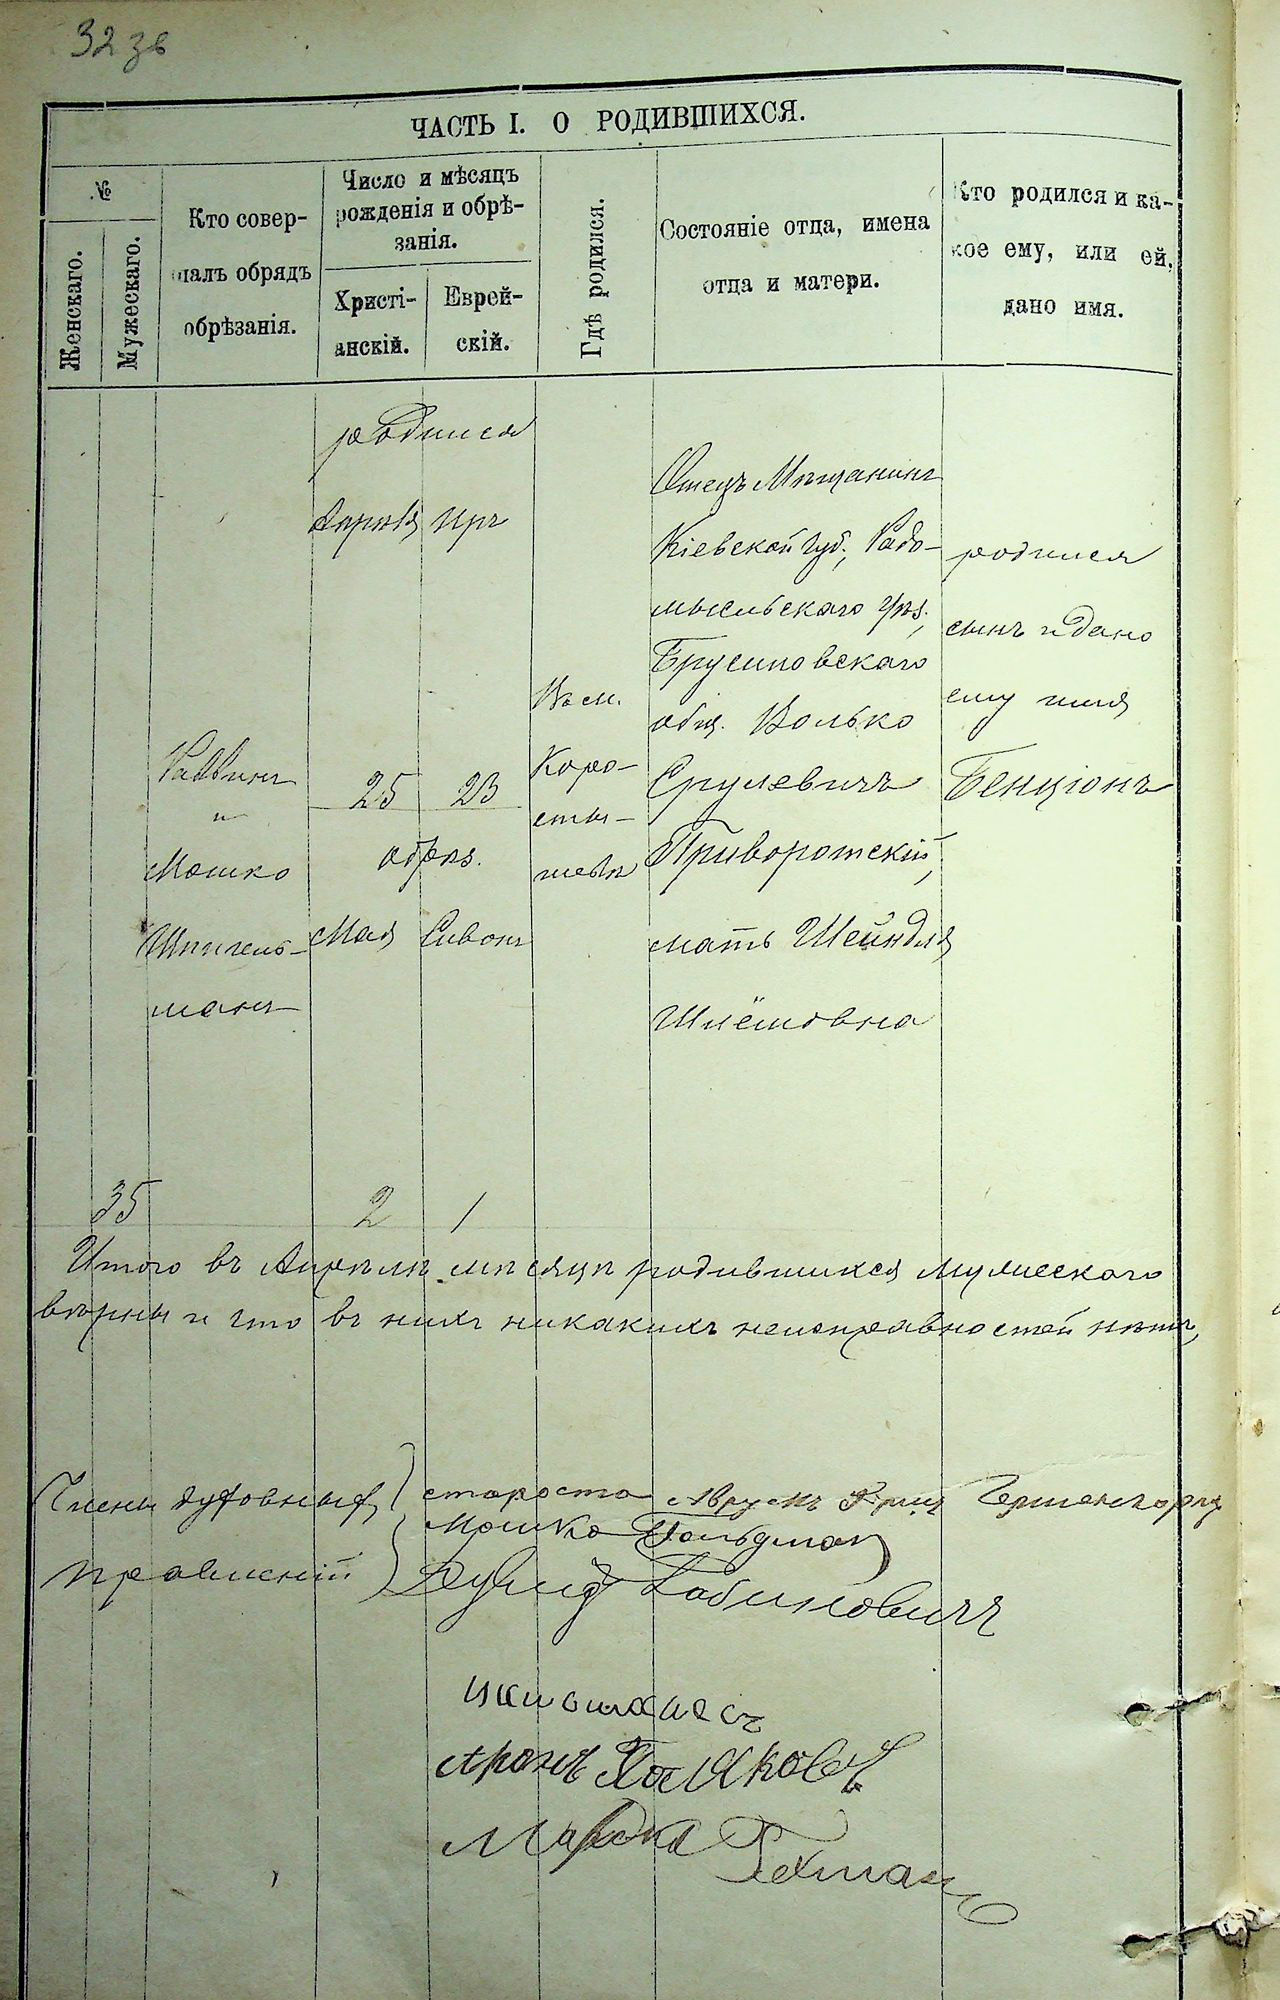 32 зв
ЧАСТЬ I. О РОДИВШИХСЯ.
№
Женскаго.
Мужескаго.
Кто совер-
шалъ обрядъ
обрѣзанія.
Число и мѣсяцъ
рожденія и обрѣ-
занія.
Христі-
анскій.
Еврей-
скій.
Гдѣ родился.
Состояніе отца, имена
отца и матери.
Кто родился и ка-
кое ему, или ей,
дано имя.
35
Раввинъ
и
Мошко
Шпигель-
манъ
родился
Апрѣля Иръ
25 23
обрѣз.
Мая Сивонъ
2 1
Въ м.
Коро-
сты-
шевѣ
Отецъ Мѣщанинъ
Кіевской губ., Радо-
мысльскаго уѣз.,
Брусиловскаго
общ. Волько
Срулевичъ
Приворотскій,
мать Шейндля
Шлёмовна
родился
сынъ и дано
ему имя
Бенціонъ
Итого въ Апрѣлѣ мѣсяцѣ родившихся мужескаго
вѣрны и что въ нихъ никакихъ неисправностей нѣтъ,
Члены духовныхъ
правленій
староста
Мошко Гольдман
Рабиновичъ
Аронъ Поляковъ
Гехтман